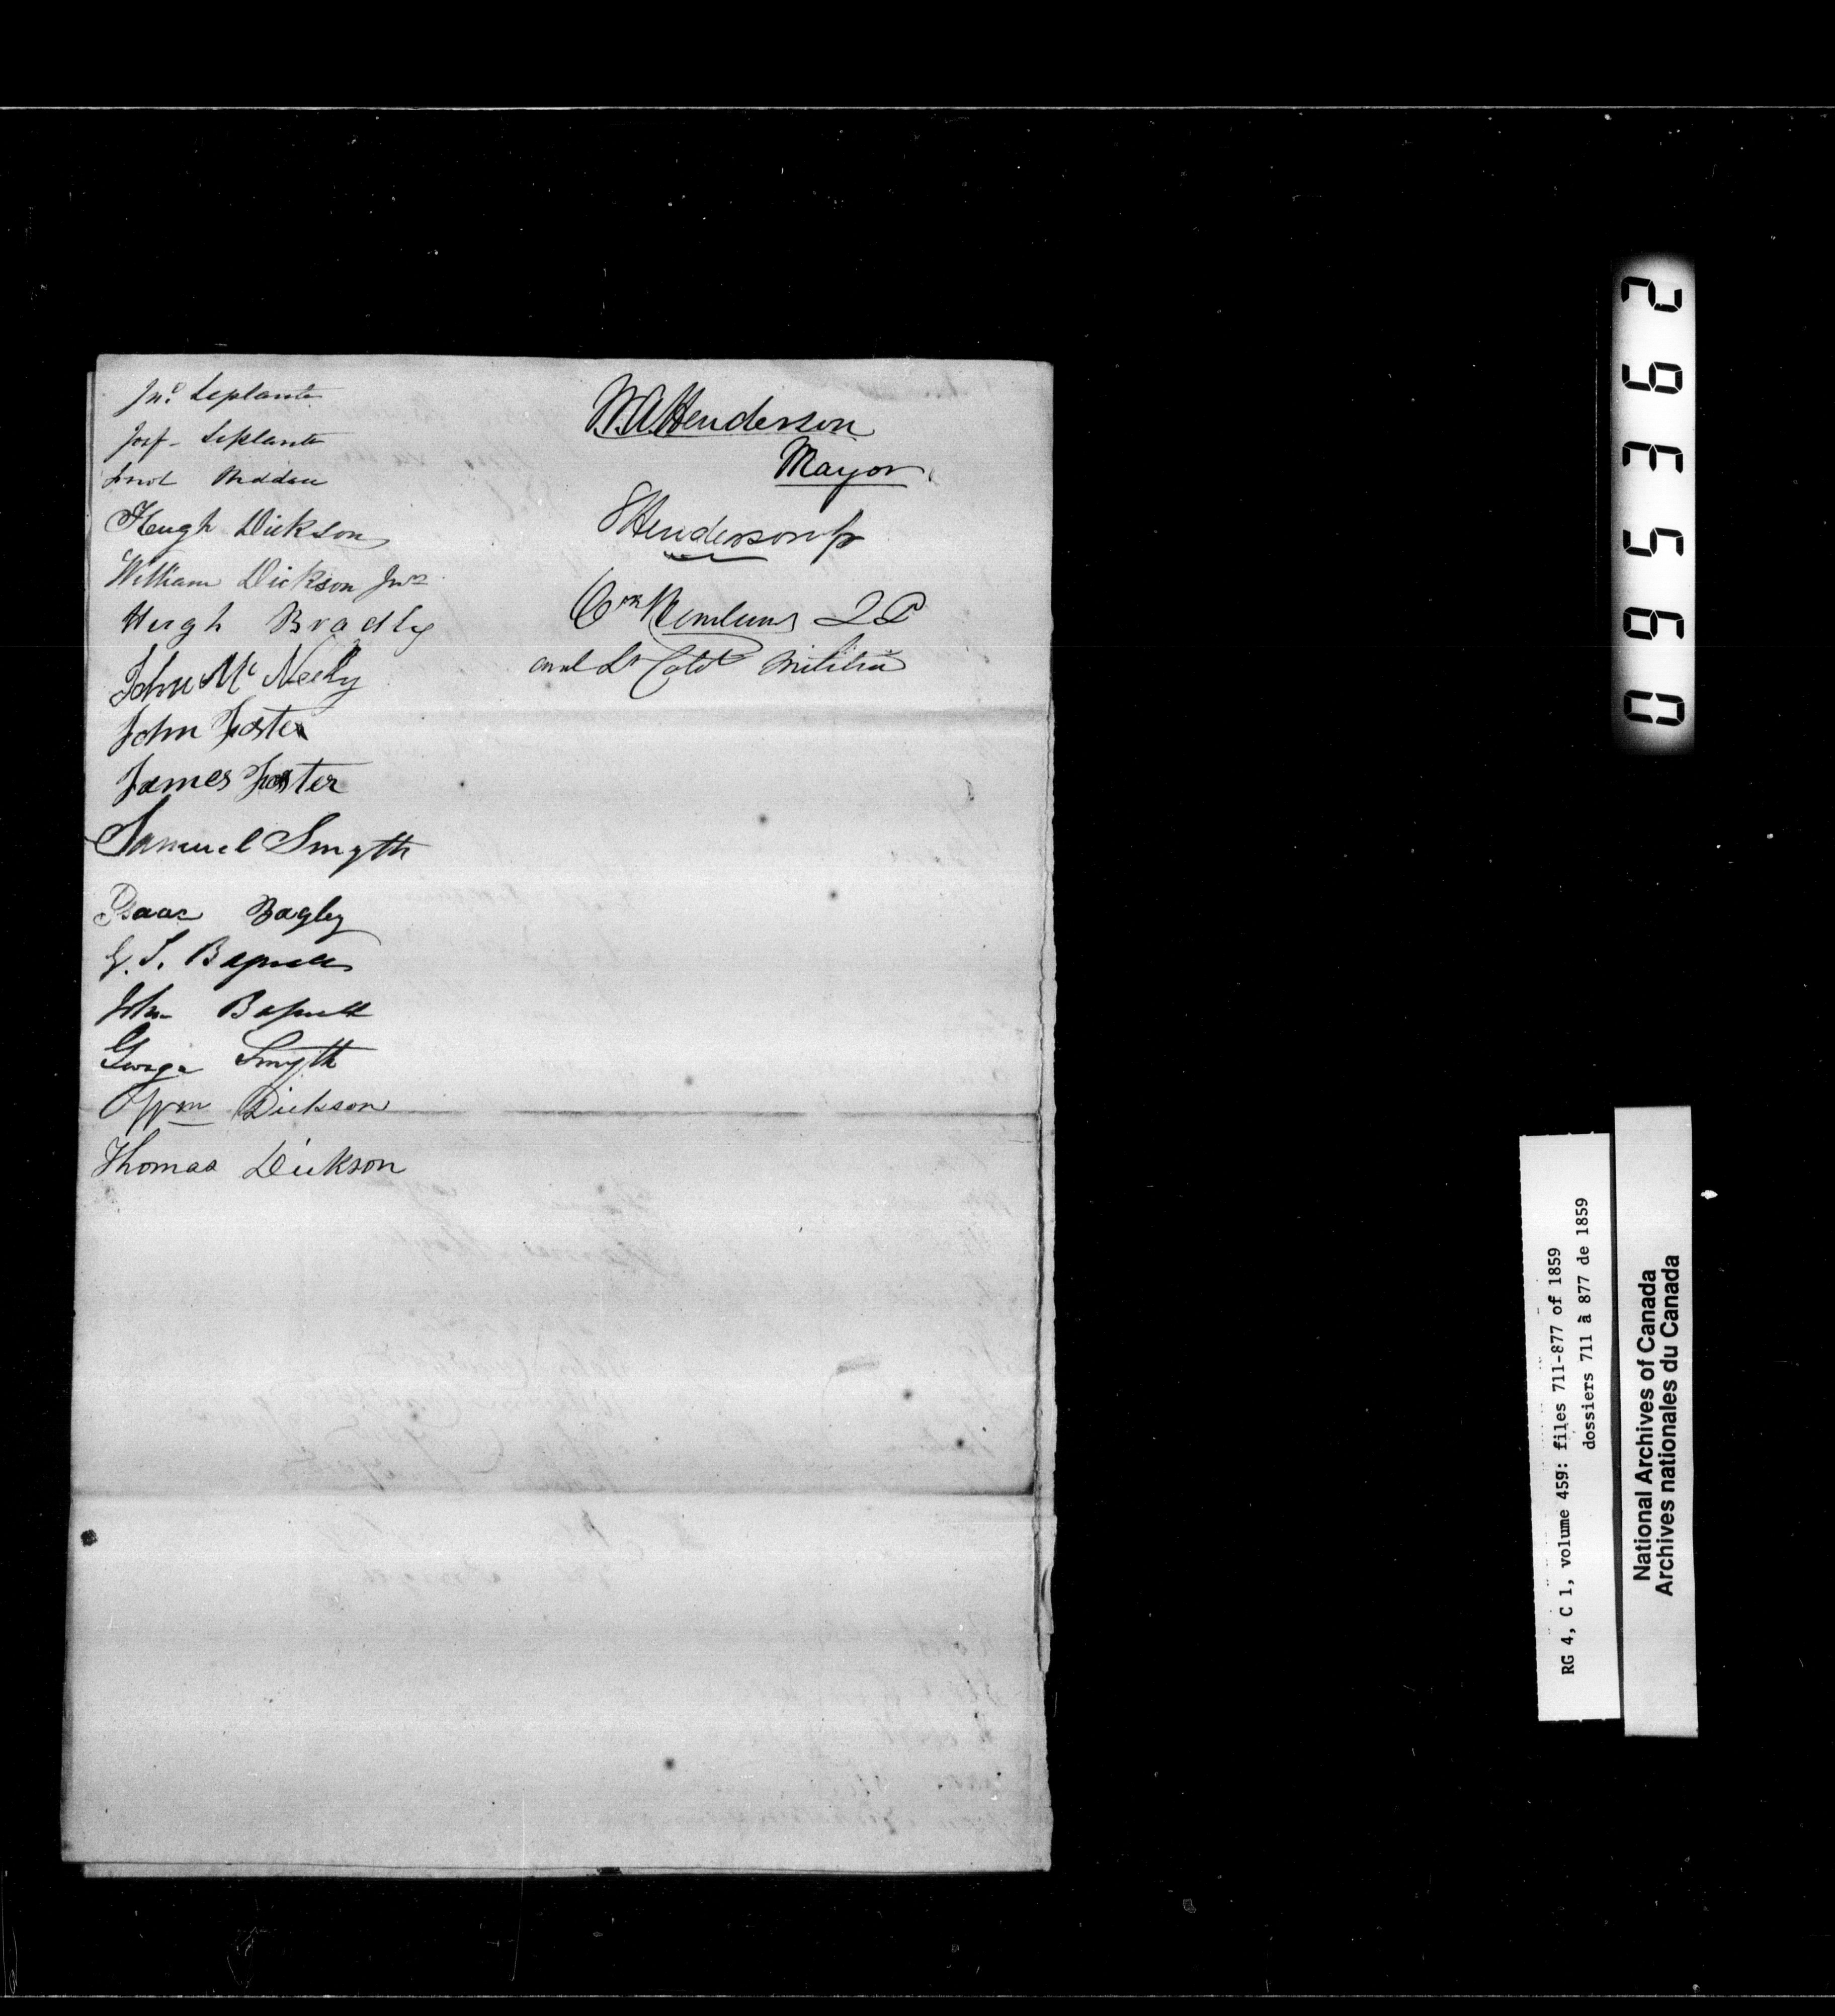 Jno. Leplante
Josf. Leplante
Hugh Dickson
William Dickson Junr
Hugh Bradly
John Mc Neely
John Foster
James Foster
Samuel Smyth
Isaac Bagley
G. S.
John
George Smyth
Wm Dickson
Thomas Dickson
W. A. Henderson
Mayor
Henderson Jr
and Lt Colol Militia
095362
RG 4, C 1, volume 459: files 711-877 of 1859
dossiers 711 à 877 de 1859
National Archives of Canada
Archives nationales du Canada